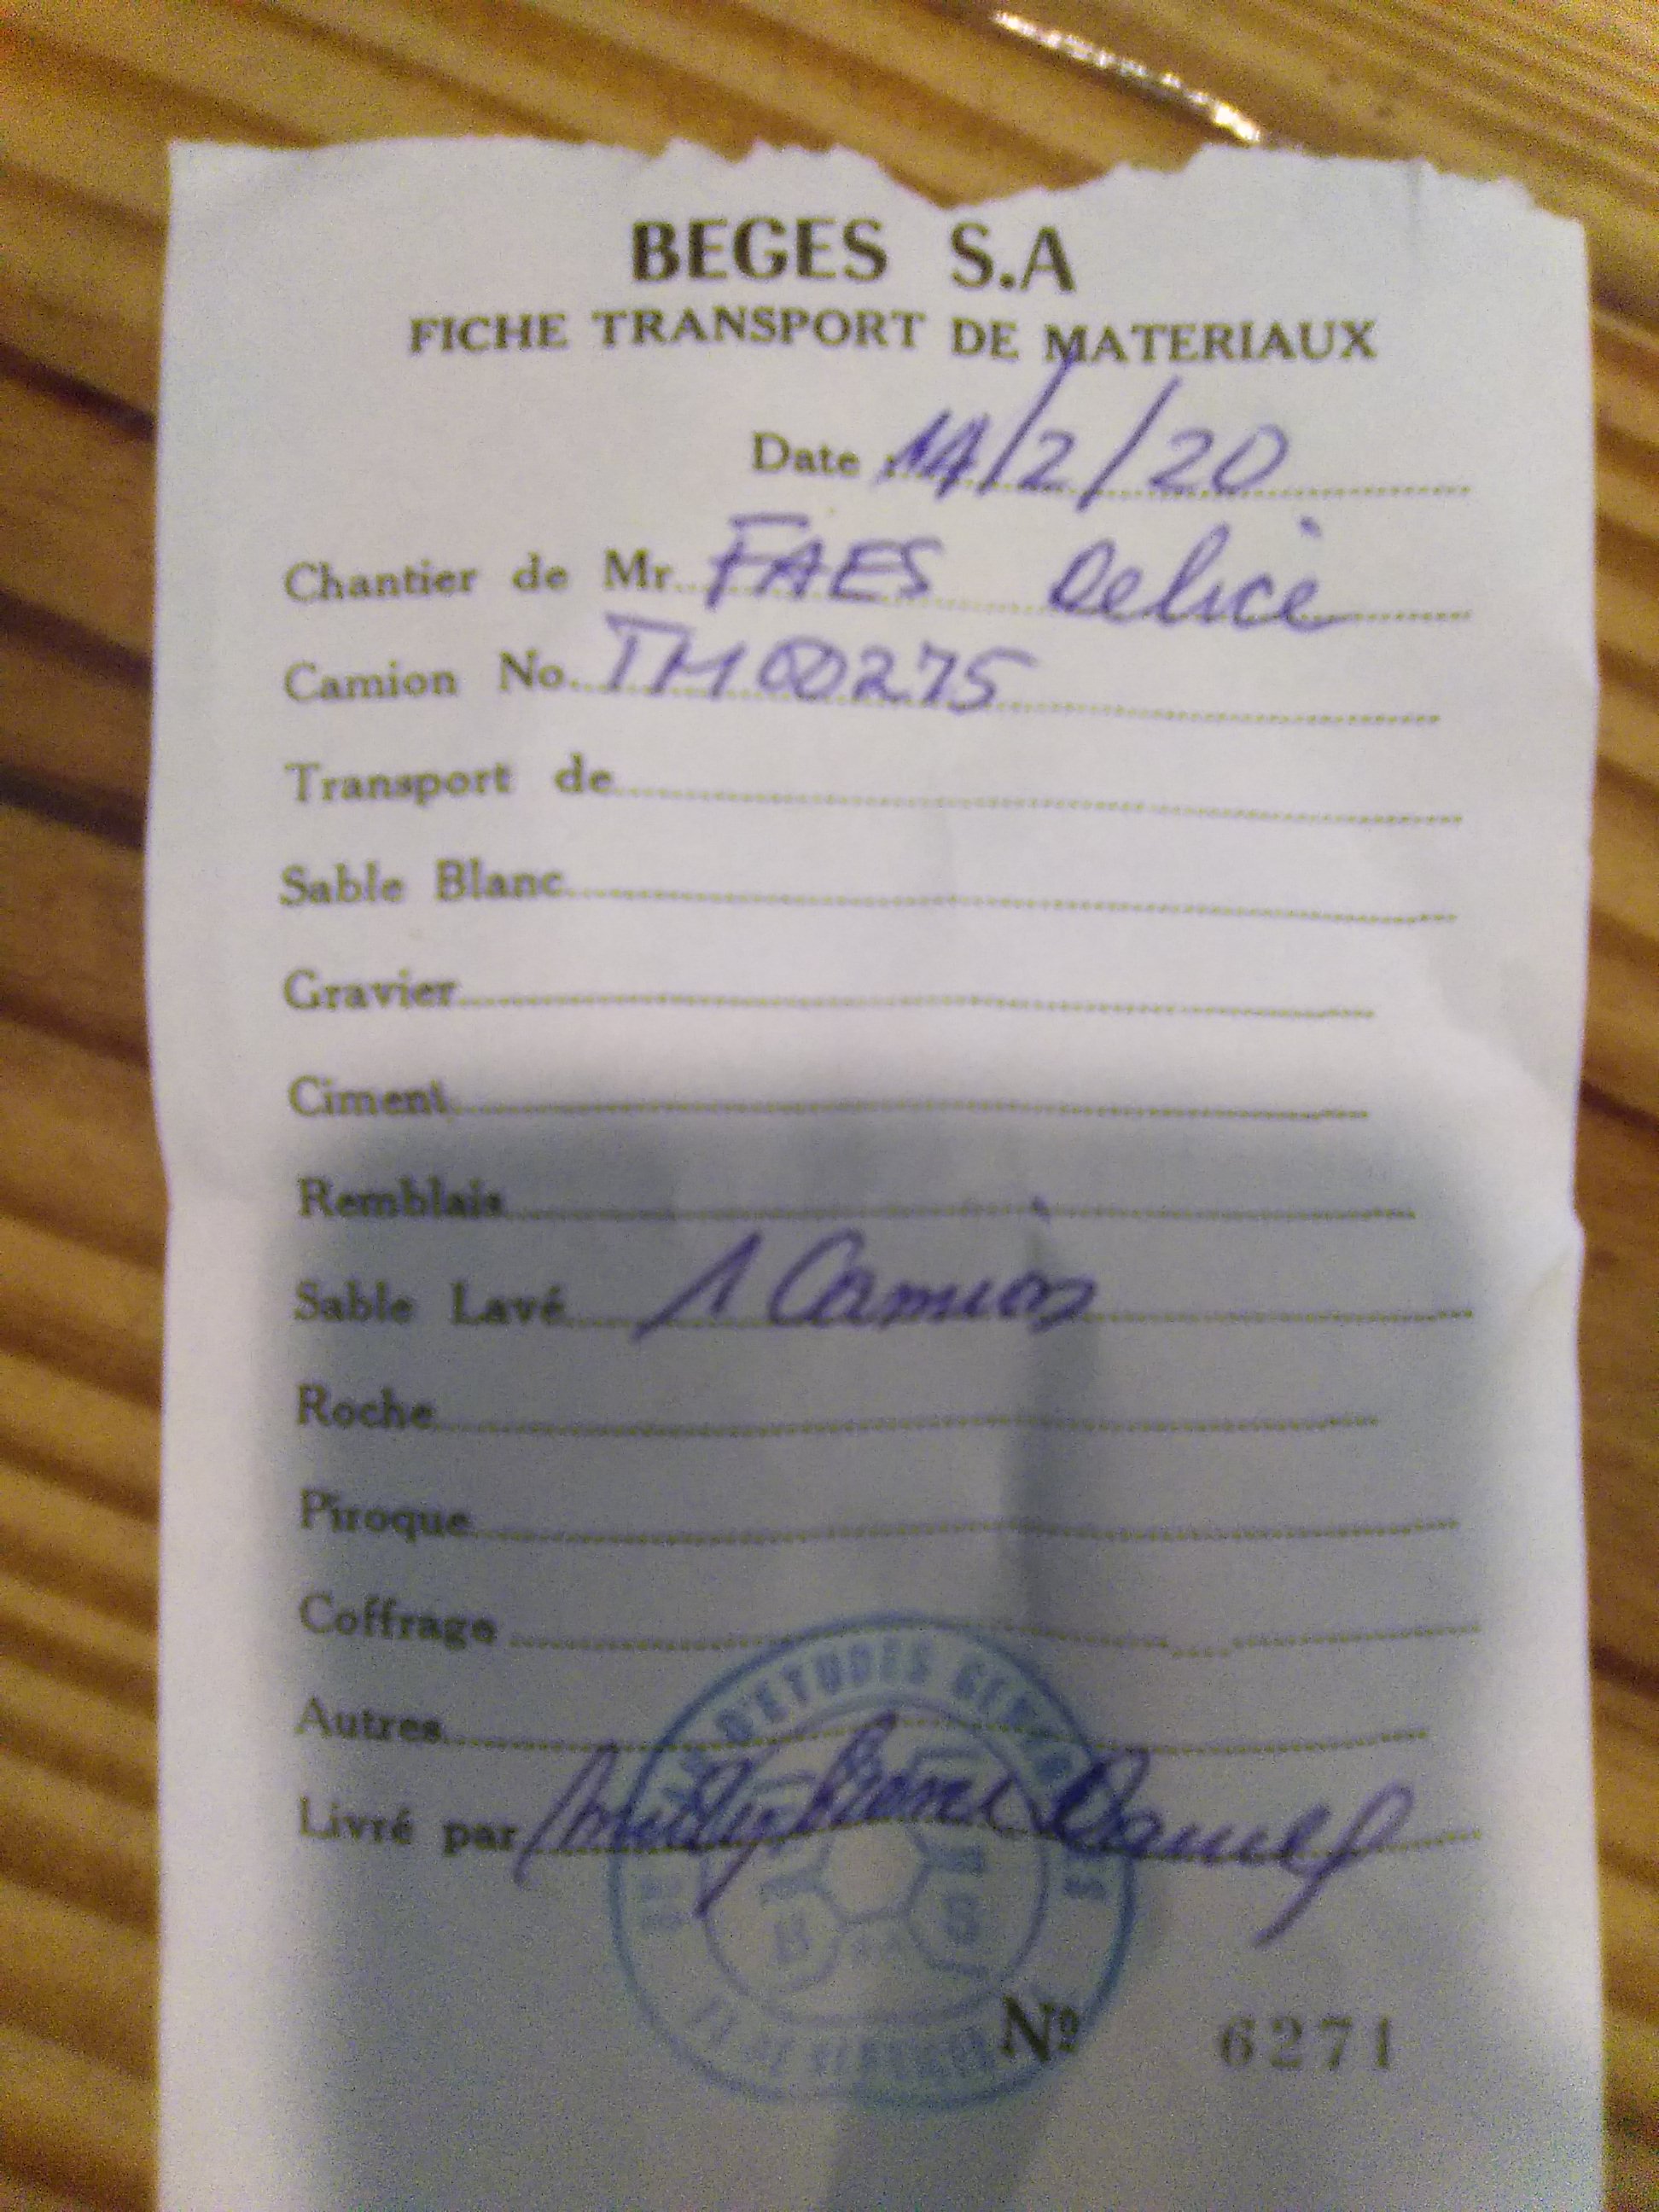 BEGES S.A
FICHE TRANSPORT DE MATERIAUX
Date : 14/2/20
Chantier de Mr. FAES Delice
Camion No. TM00275
Transport de
Sable Blanc
Gravier
Ciment
Remblais
Sable Lavé 1 Camion
Roche
Piroque
Coffrage
Autres
Livré par Daniel
D'ETUDES
ET DE
B S
Nº 6271